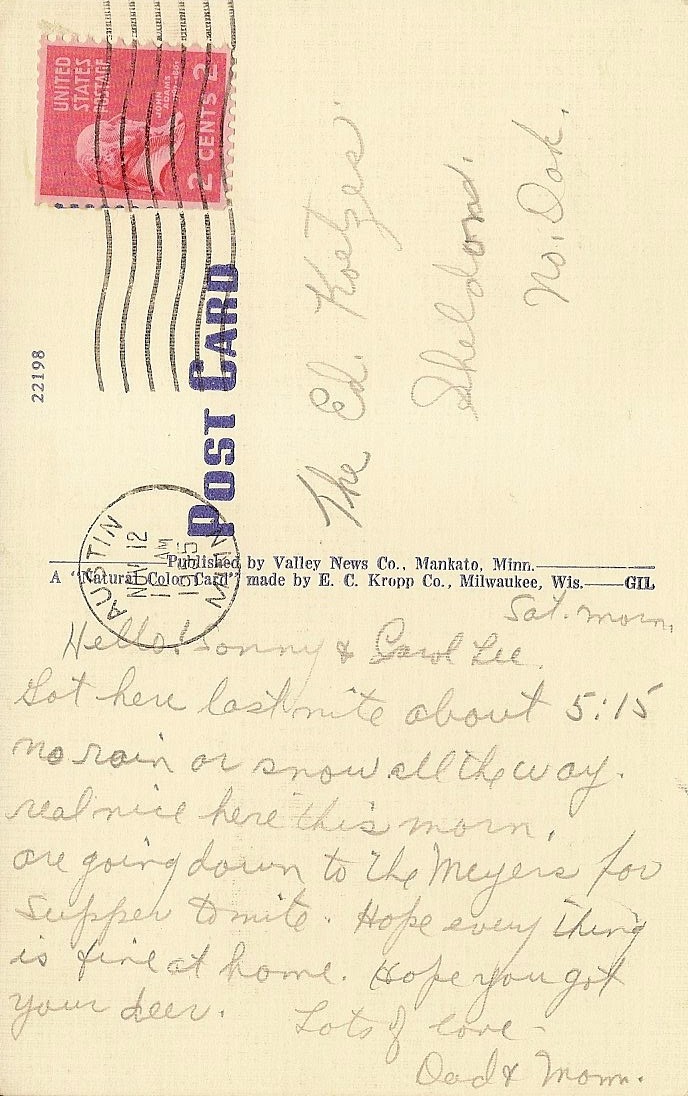 UNITED
STATES
POSTAGE
JOHN
ADAMS
2 CENTS 2
22198
POST CARD
AUSTIN
NOV 12
AM
1955
MINN
The Ed. Koetzes'
Sheldon.
No. Dak.
Published by Valley News Co., Mankato, Minn.
A "Natural Color Card" made by E. C. Kropp Co., Milwaukee, Wis. GIL
Sat. morn.
Hello! Sonny & Carol Lee.
Got here last nite about 5:15
no rain or snow all the way.
real nice here this morn.
are going down to the Meyers for
supper tonite. Hope every thing
is fine at home. Hope you got
your deer. Lots of love -
Dad & Mom.